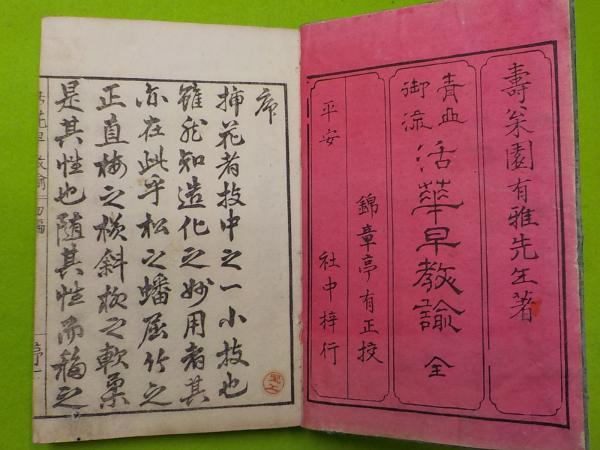 壽榮園有雅先生著
青山御流
活華早教諭 全
錦章亭有正校
平安 社中梓行
序
挿花者技中之一小技也
雖然知造化之妙用者其
亦在此乎松之蟠屈竹之
正直梅之横斜枝之軟弱
是其性也随其性而稱之
活花早教諭 初編
序一